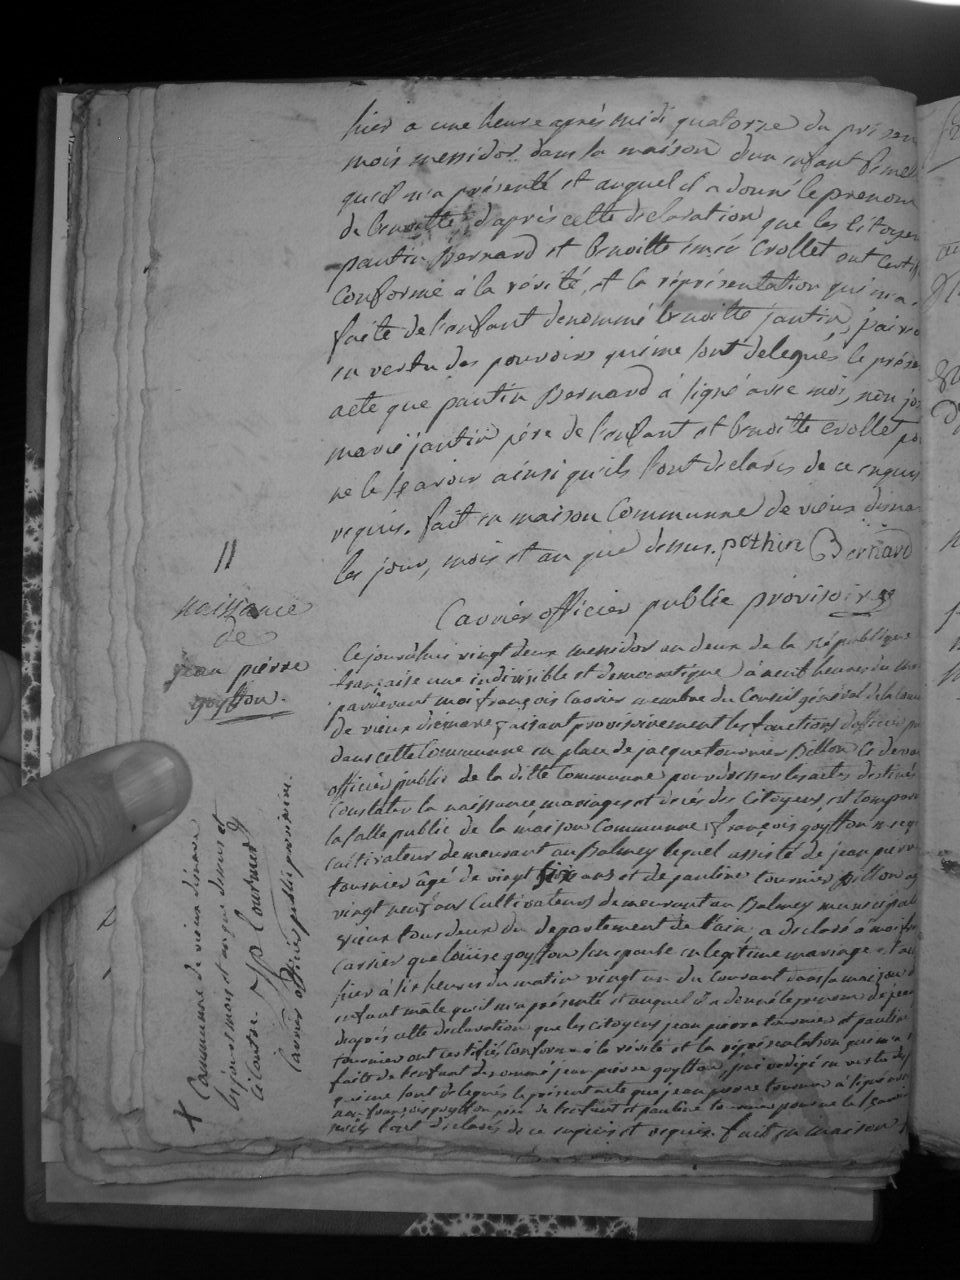 hier a une heure après midi quatorze du présen
mois messidor dans sa maison d'un enfant femel
qu'il m'a présenté et auquel il a donné le prenom
de benoitte d'après cette déclaration que les citoyen
pautin Bernard et benoitte crollet ont certif
conforme à la vérité, et la représentation qui m'a
faite de l'enfant denommé benoitte jantin, j'ai
en vertu des pouvoirs qui me sont delegués le présen
acte que pautin Bernard à signé avec moi, non
marie jantin père de l'enfant et benoitte crollet
ne le sçavoir ainsi qu'ils l'ont declarés de ce enquis
requis. fait en maison Communne de vieux
les jour, mois et an que dessus. pothin Bernard
Carrier officier public provisoire
11
naissance
de
jean pierre
goyffon.
Cejourd'hui vingt deux messidor an deux de la république
française une indivisible et democratique à neuf heures du
pardevant moi françois Carrier membre du Conseil général de la
de vieux faisant provisoirement les fonctions d'officier
dans cette Communne en place de jacque tournier Billon
officier public de la ditte Communne pour dresser les actes destinés
Constater la naissance, mariages et décés des Citoyens, est
la salle public de la maison Communne françois goyffon
cultivateur demeurant au Balmey lequel assisté de jean pierre
tournier âgé de vingt six ans et de pauline tournier Billon
vingt neuf ans Cultivateurs demeurant au Balmey
tous deux du departement de l'ain, a declaré à moi
Carrier que louise goyffon son epouse en legitime mariage est
hier à six heures du matin vingt un du Courant dans sa maison
enfant mâle qu'il m'a présenté et auquel il a donné le prenom de jean
d'après cette déclaration que les citoyens jean pierre tournier et pauline
tournier ont certifiés Conforme à la vérité et la représentation qui m'a
faite de l'enfant denommé jean pierre goyffon, j'ai redigé en vertu des
qui me sont delegués le présent acte que jean pierre tournier à signé
non françois goyffon père de l'enfant et pauline tournier pour ne le sçavoir
l'ont declarés de ce enquis et requis. fait en maison
Communne de vieux
les jour et mois et an que dessus et
J p tournier
Carrier officier public provisoire